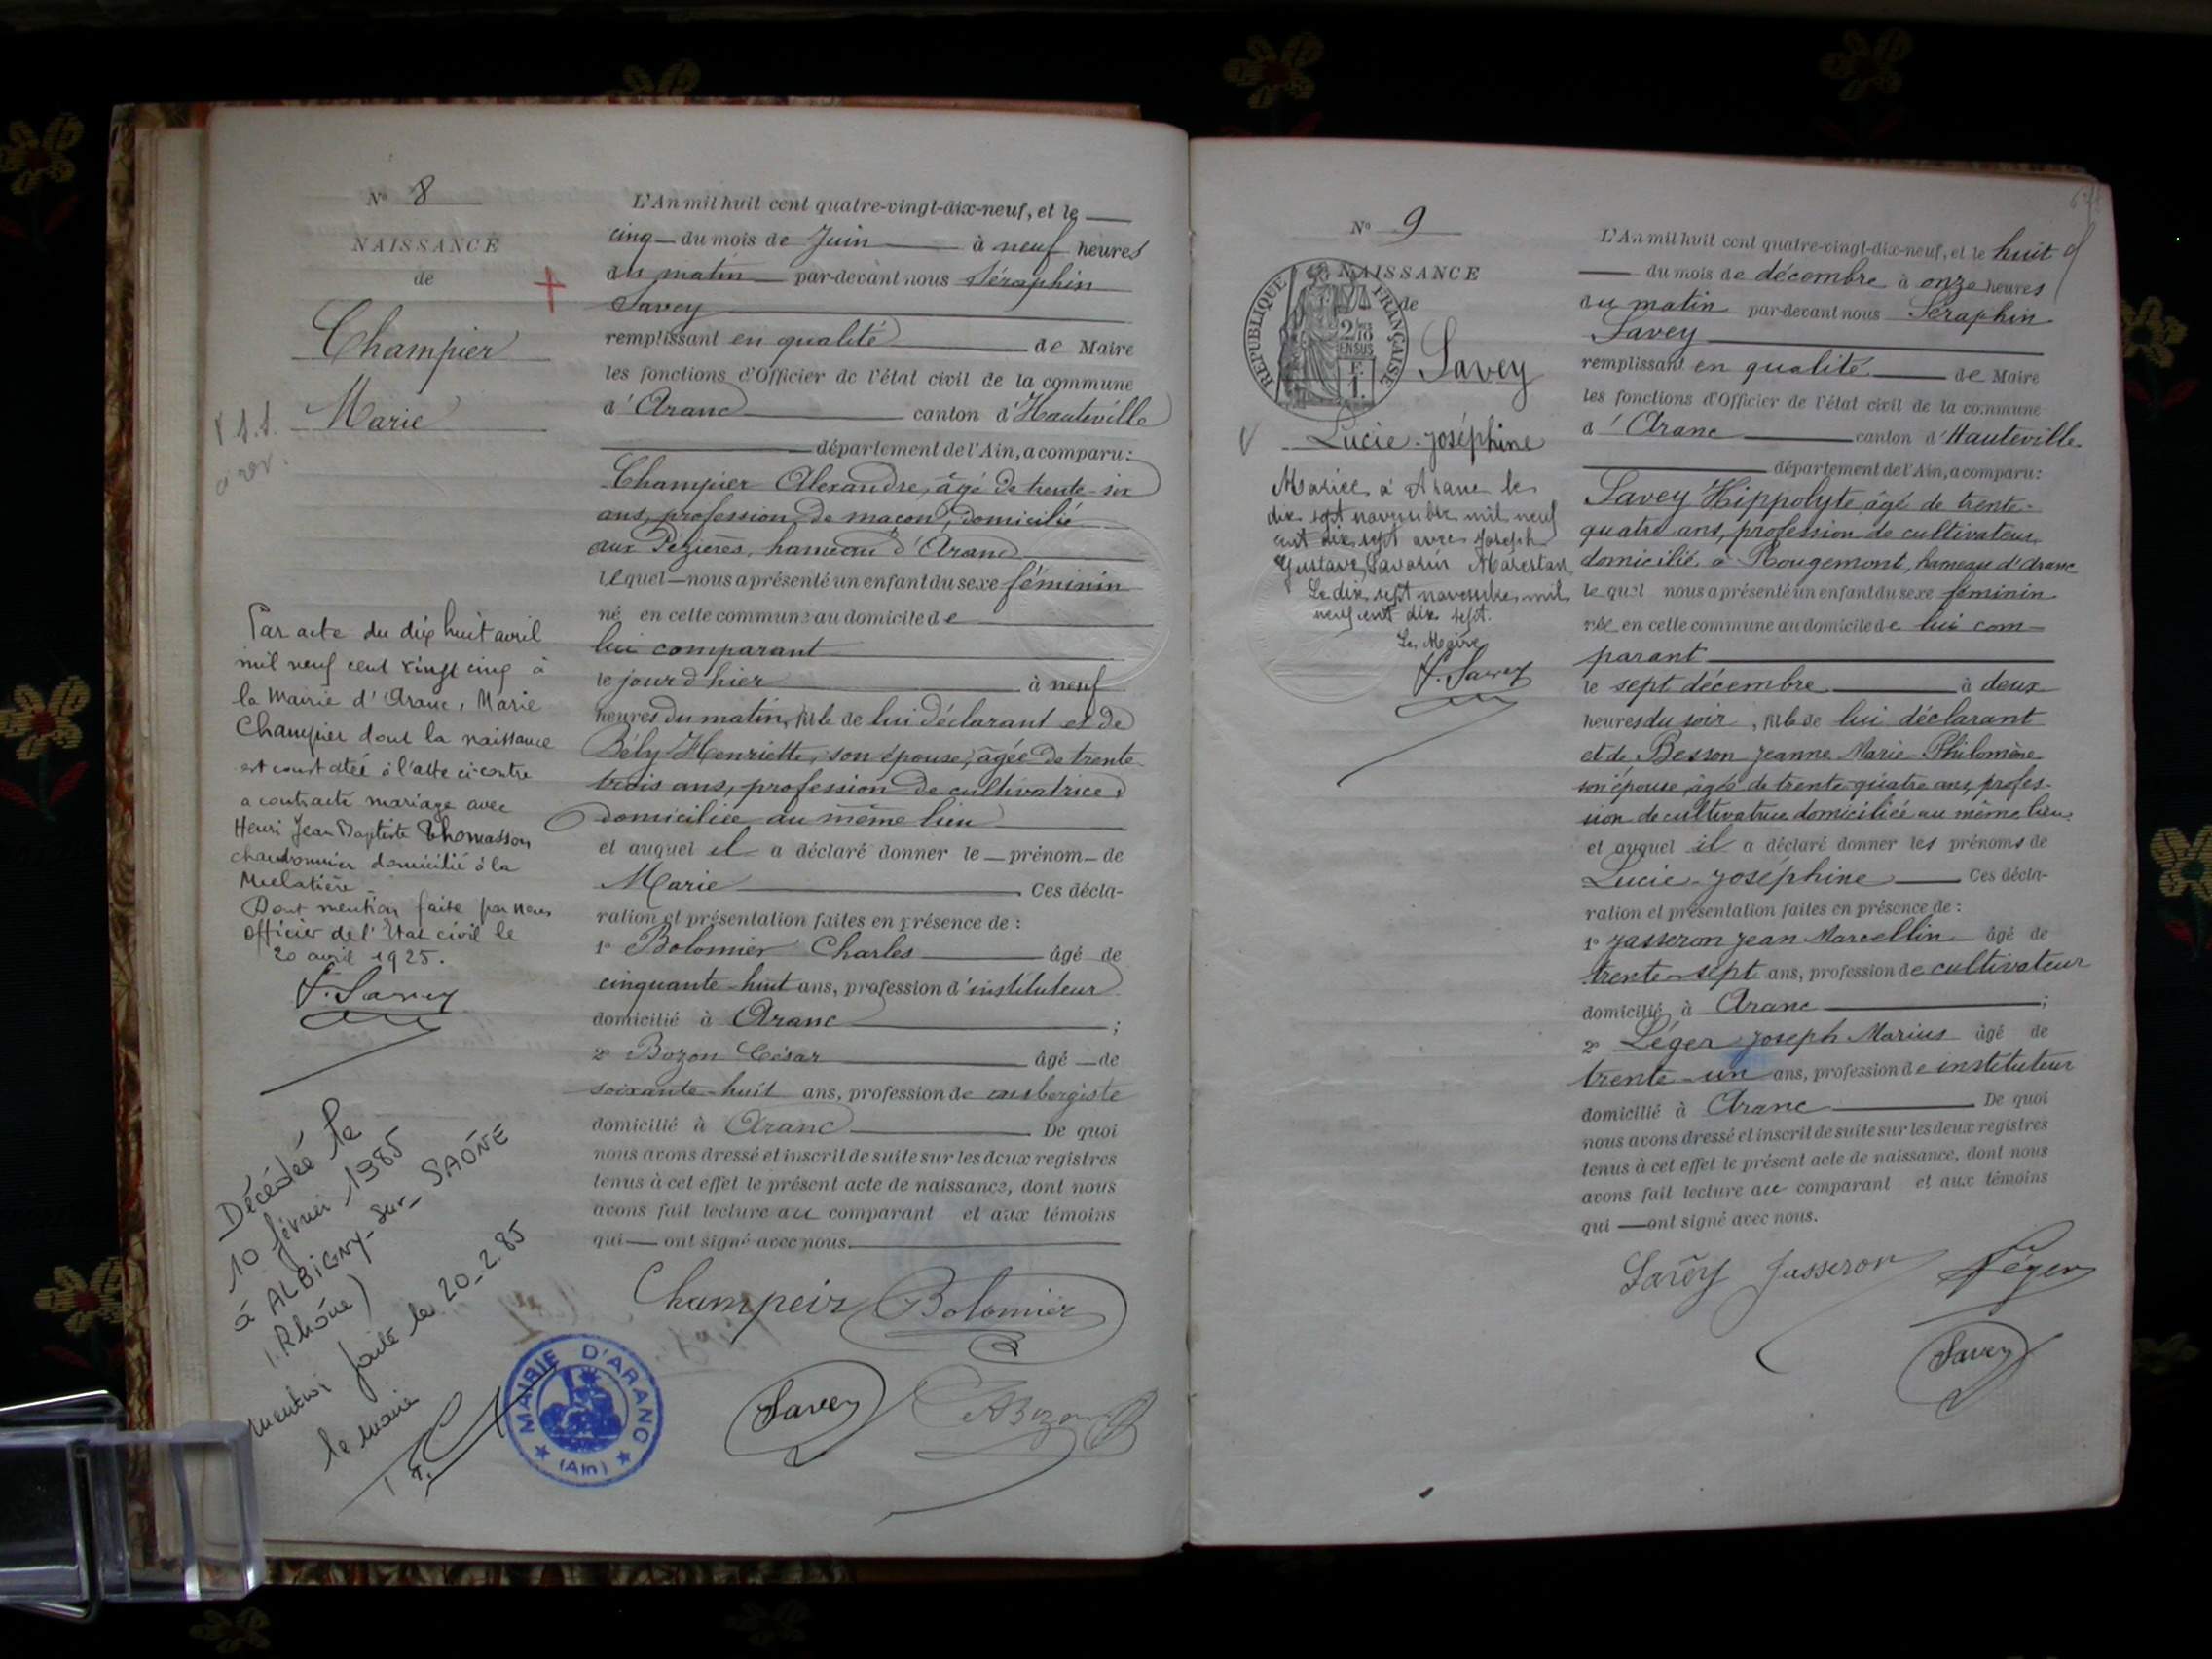 N° 8
NAISSANCE
de
Champier
Marie
Par acte du dix huit avril
mil neuf cent vingt cinq à
la Mairie d'Aranc, Marie
Champier dont la naissance
est constatée à l'acte ci-contre
a contracté mariage avec
Henri Jean Baptiste Thomasson
domicilié à la
Mulatière
Dont mention faite par nous
officier de l'Etat civil le
20 avril 1925.
S. Savey
Décédée le
10 février 1985
à ALBIGNY-sur-SAÔNE
(Rhône)
mention faite le 20-2.85
le maire
MAIRIE D'ARANC
(Ain)
L'An mil huit cent quatre-vingt-dix-neuf, et le
cinq du mois de Juin à neuf heures
du matin par-devant nous Séraphin
Savey
remplissant en qualité de Maire
les fonctions d'Officier de l'état civil de la commune
d'Aranc canton d'Hauteville
département de l'Ain, a comparu :
Champier Alexandre, âgé de trente-six
ans, profession de maçon, domicilié
aux Pézières, hameau d'Aranc
lequel nous a présenté un enfant du sexe féminin
né en cette commune au domicile de
lui comparant
le jour d'hier à neuf
heures du matin, fille de lui déclarant et de
Bély Henriette, son épouse, âgée de trente-
trois ans, profession de cultivatrice,
domiciliée au même lieu
et auquel il a déclaré donner le prénom de
Marie Ces décla-
ration et présentation faites en présence de :
1° Bolomier Charles âgé de
cinquante-huit ans, profession d'instituteur
domicilié à Aranc ;
2° Bozon César âgé de
soixante-huit ans, profession de aubergiste
domicilié à Aranc De quoi
nous avons dressé et inscrit de suite sur les deux registres
tenus à cet effet le présent acte de naissance, dont nous
avons fait lecture au comparant et aux témoins
qui ont signé avec nous.
Champeir Bolomier
Savey Bozon
N° 9
NAISSANCE
de
REPUBLIQUE FRANÇAISE
2/10 EN SUS
F. 1.
Savey
Lucie-Joséphine
Mariée à Aranc le
dix sept novembre mil neuf
cent dix sept avec Joseph
Gustave Savarin Marestan
Le dix sept novembre mil
neuf cent dix sept.
Le Maire
S. Savey
L'An mil huit cent quatre-vingt-dix-neuf, et le huit
du mois de décembre à onze heures
du matin par-devant nous Séraphin
Savey
remplissant en qualité de Maire
les fonctions d'Officier de l'état civil de la commune
d'Aranc canton d'Hauteville
département de l'Ain, a comparu :
Savey Hippolyte âgé de trente-
quatre ans, profession de cultivateur
domicilié à Rougemont, hameau d'Aranc
lequel nous a présenté un enfant du sexe féminin
née en cette commune au domicile de lui com-
parant
le sept décembre à deux
heures du soir, fille de lui déclarant
et de Besson Jeanne Marie-Philomène
son épouse âgée de trente-quatre ans, profes-
sion de cultivatrice domiciliée au même lieu,
et auquel il a déclaré donner les prénoms de
Lucie-Joséphine Ces décla-
ration et présentation faites en présence de :
1° Jasseron Jean Marcellin âgé de
trente-sept ans, profession de cultivateur
domicilié à Aranc ;
2° Léger Joseph Marius âgé de
trente-un ans, profession de instituteur
domicilié à Aranc De quoi
nous avons dressé et inscrit de suite sur les deux registres
tenus à cet effet le présent acte de naissance, dont nous
avons fait lecture au comparant et aux témoins
qui ont signé avec nous.
Savey Jasseron Léger
Savey